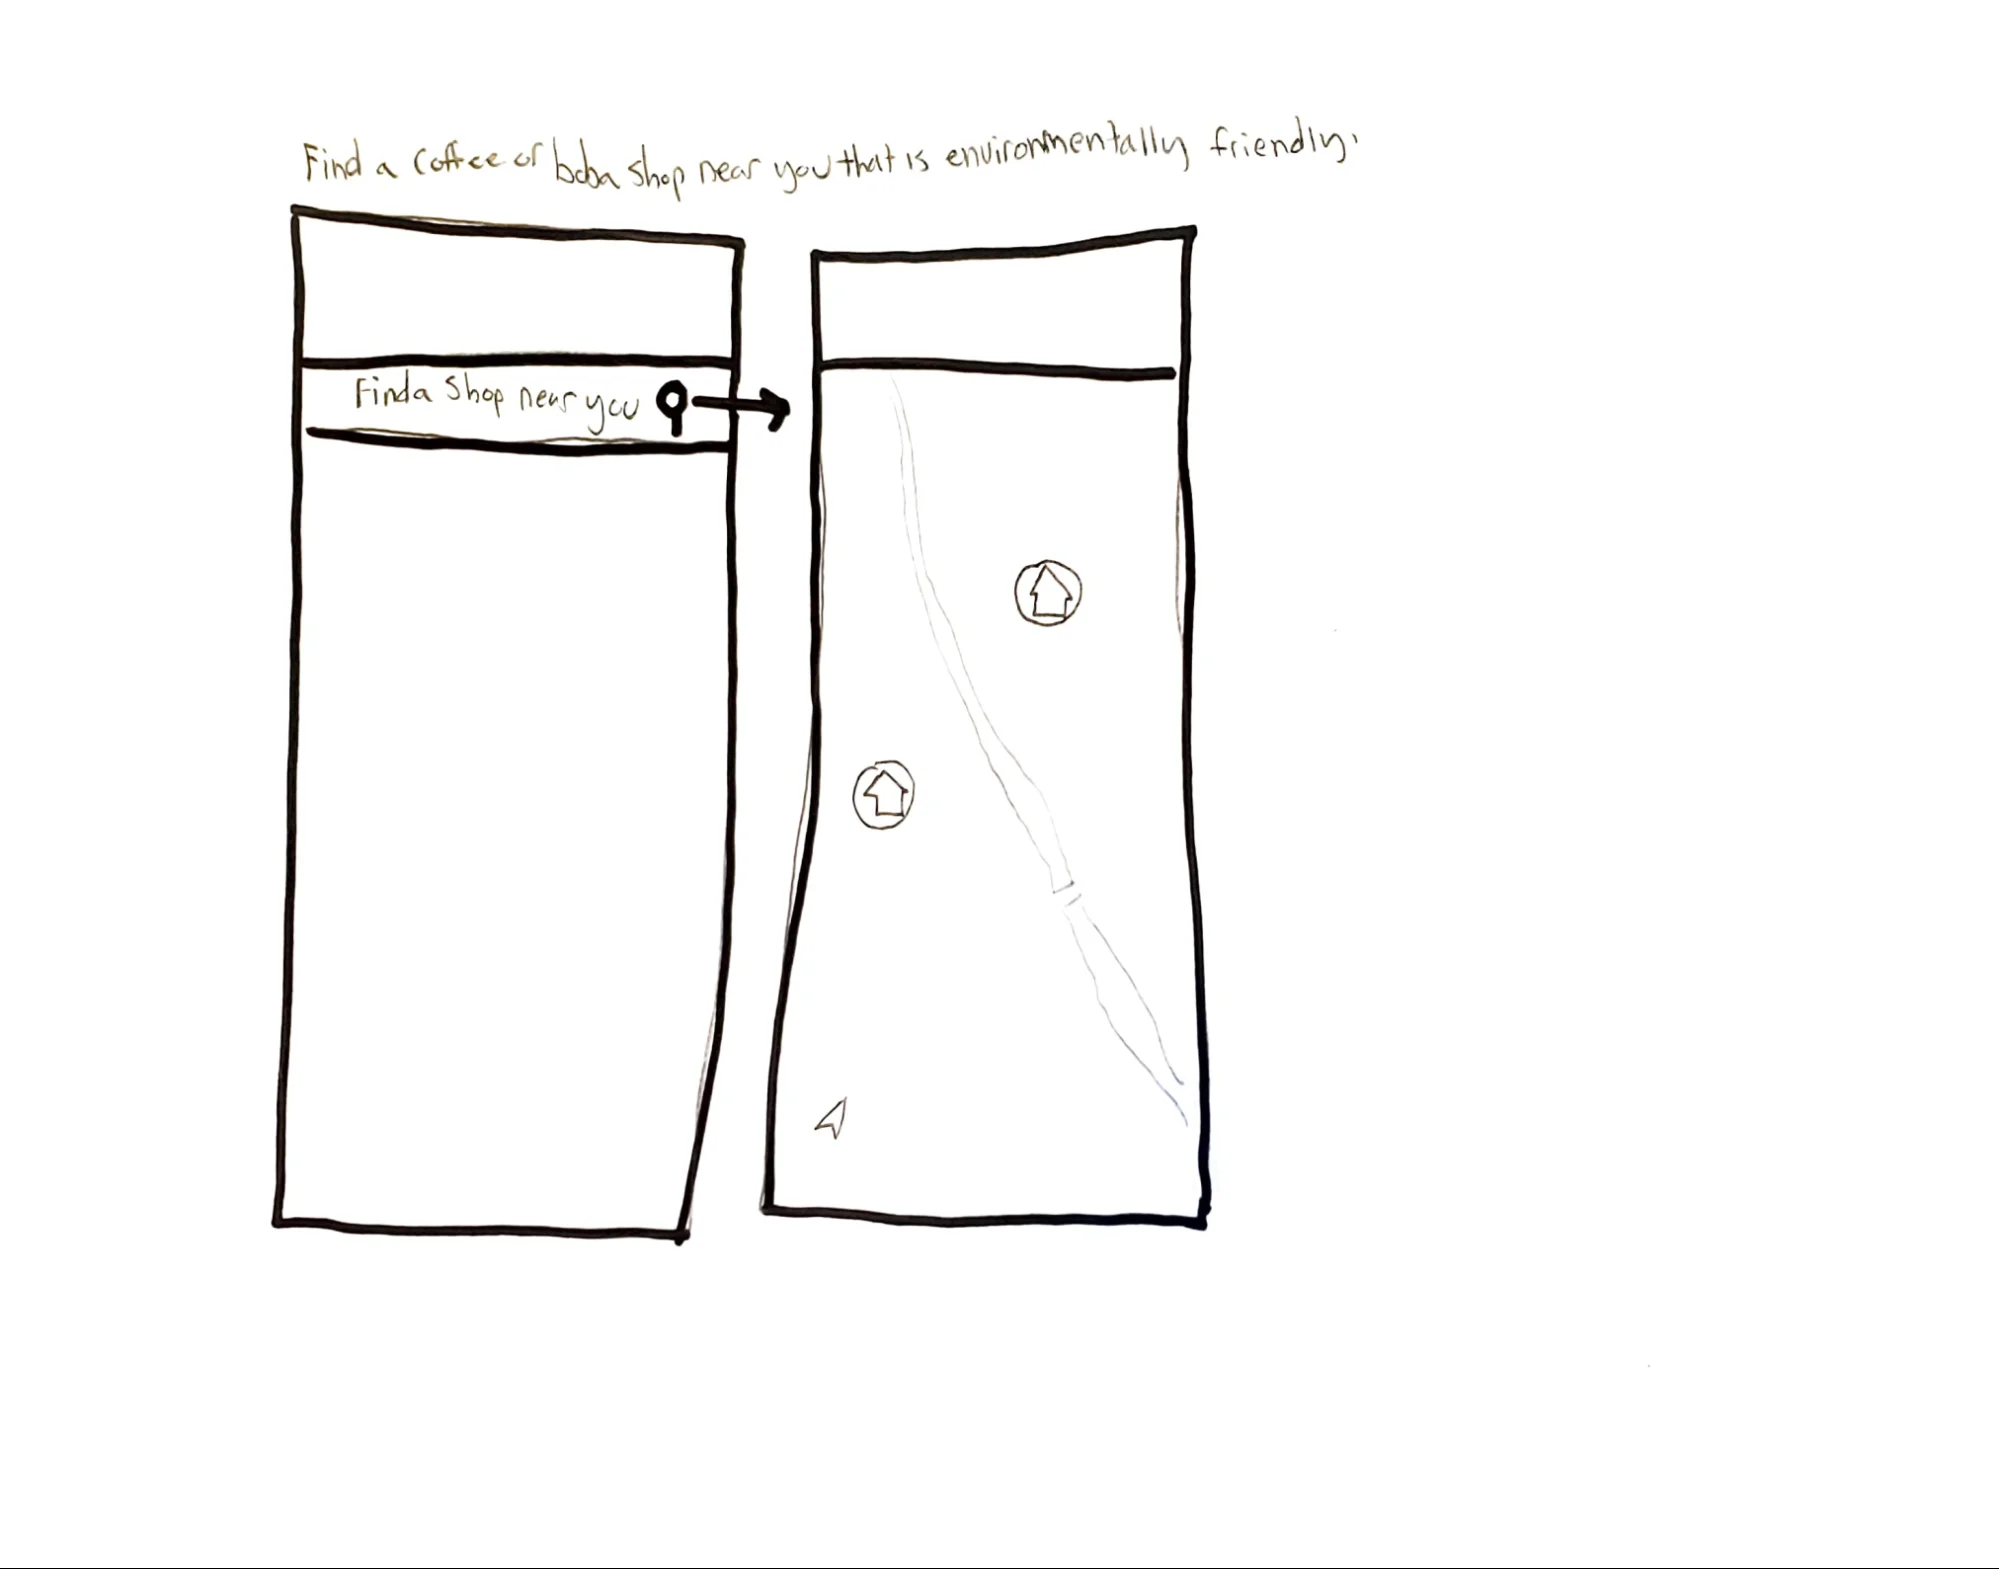 Find a coffee or boba shop near you that is environmentally friendly.
Find a shop near you